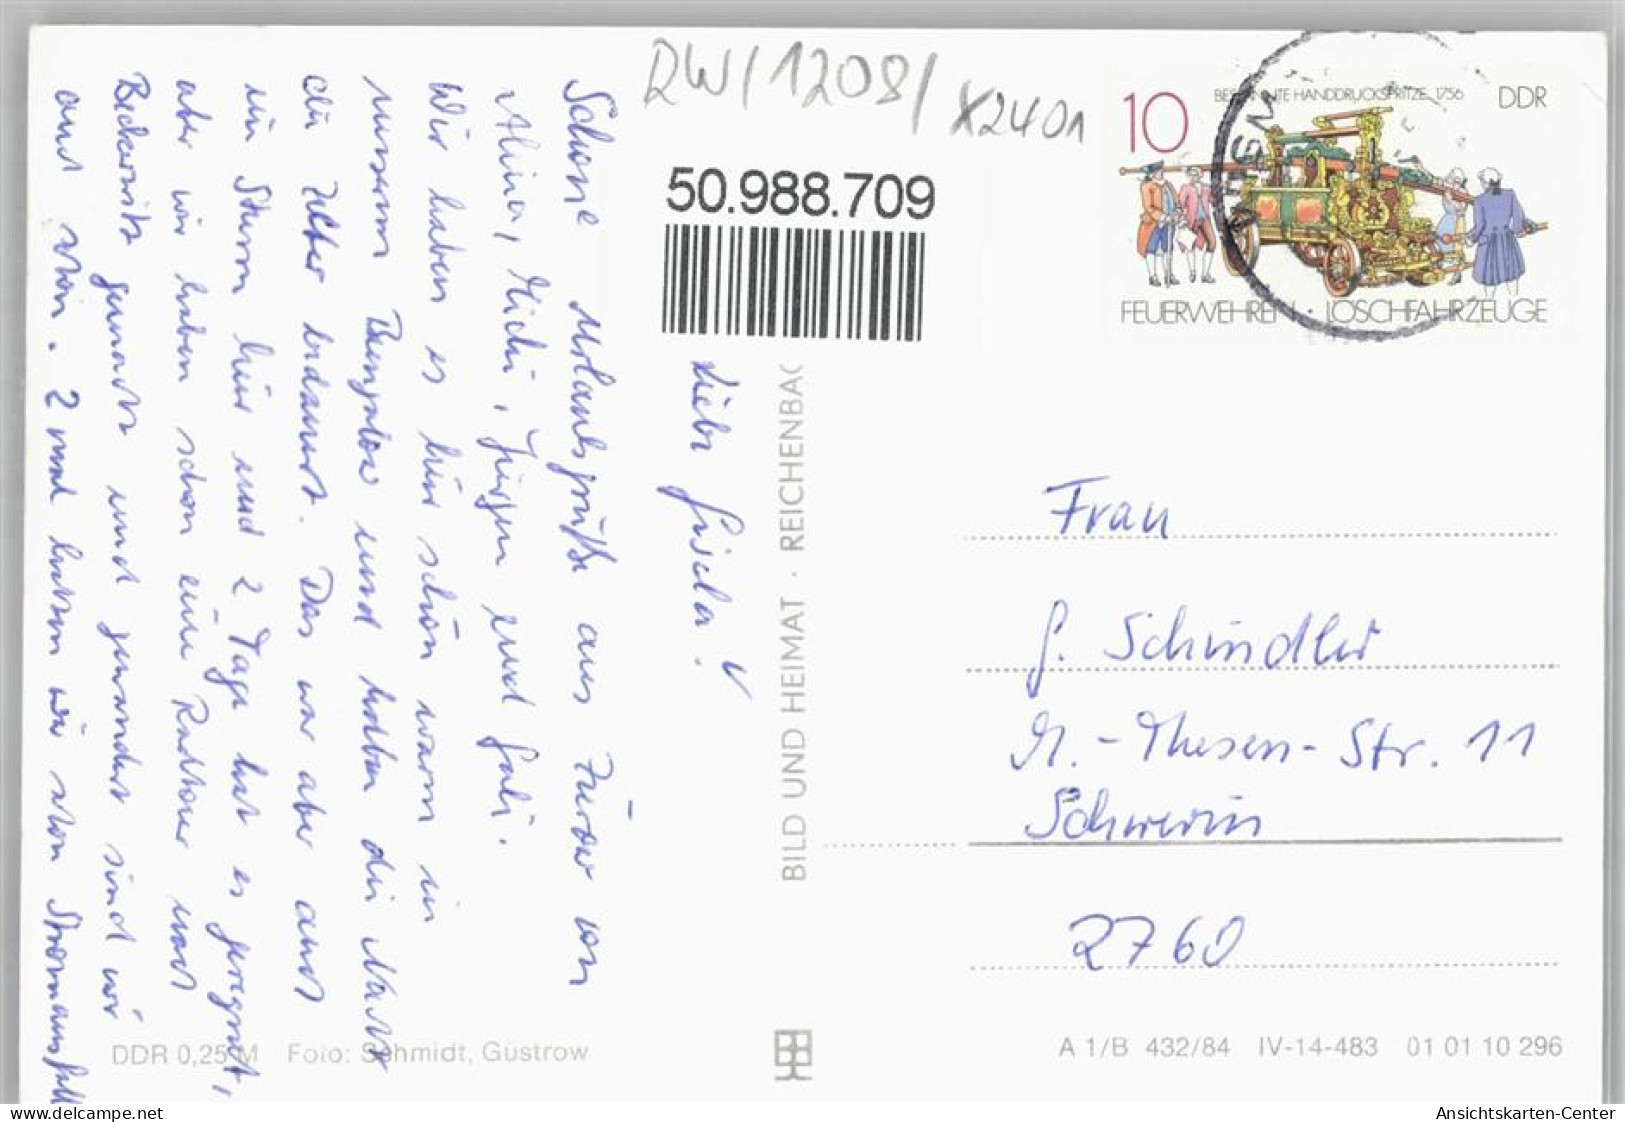 RW/1208/
X2401
50.988.709
10
HANDDRUCKSPRITZE, 1756
DDR
FEUERWEHREN · LÖSCHFAHRZEUGE
Liebe Gisela!
Schöne Urlaubsgrüße aus Zurow von
Alina, Michi, Jürgen und Gabi.
Wir haben es hier schön warm in
unserm Bungalow und haben die Nacht
im Zelter bedauert. Das war aber auch
ein Sturm hier und 2 Tage hat es geregnet,
aber wir haben schon eine Radtour nach
gemacht und gewandert sind wir
auch schon. 2 mal hatten wir schon Stromausfall
BILD UND HEIMAT · REICHENBAC
Frau
G. Schindler
M.-Thesen-Str. 11
Schwerin
2760
DDR 0,25 M Foto: Schmidt, Güstrow
A 1/B 432/84 IV-14-483 01 01 10 296
Ansichtskarten-Center